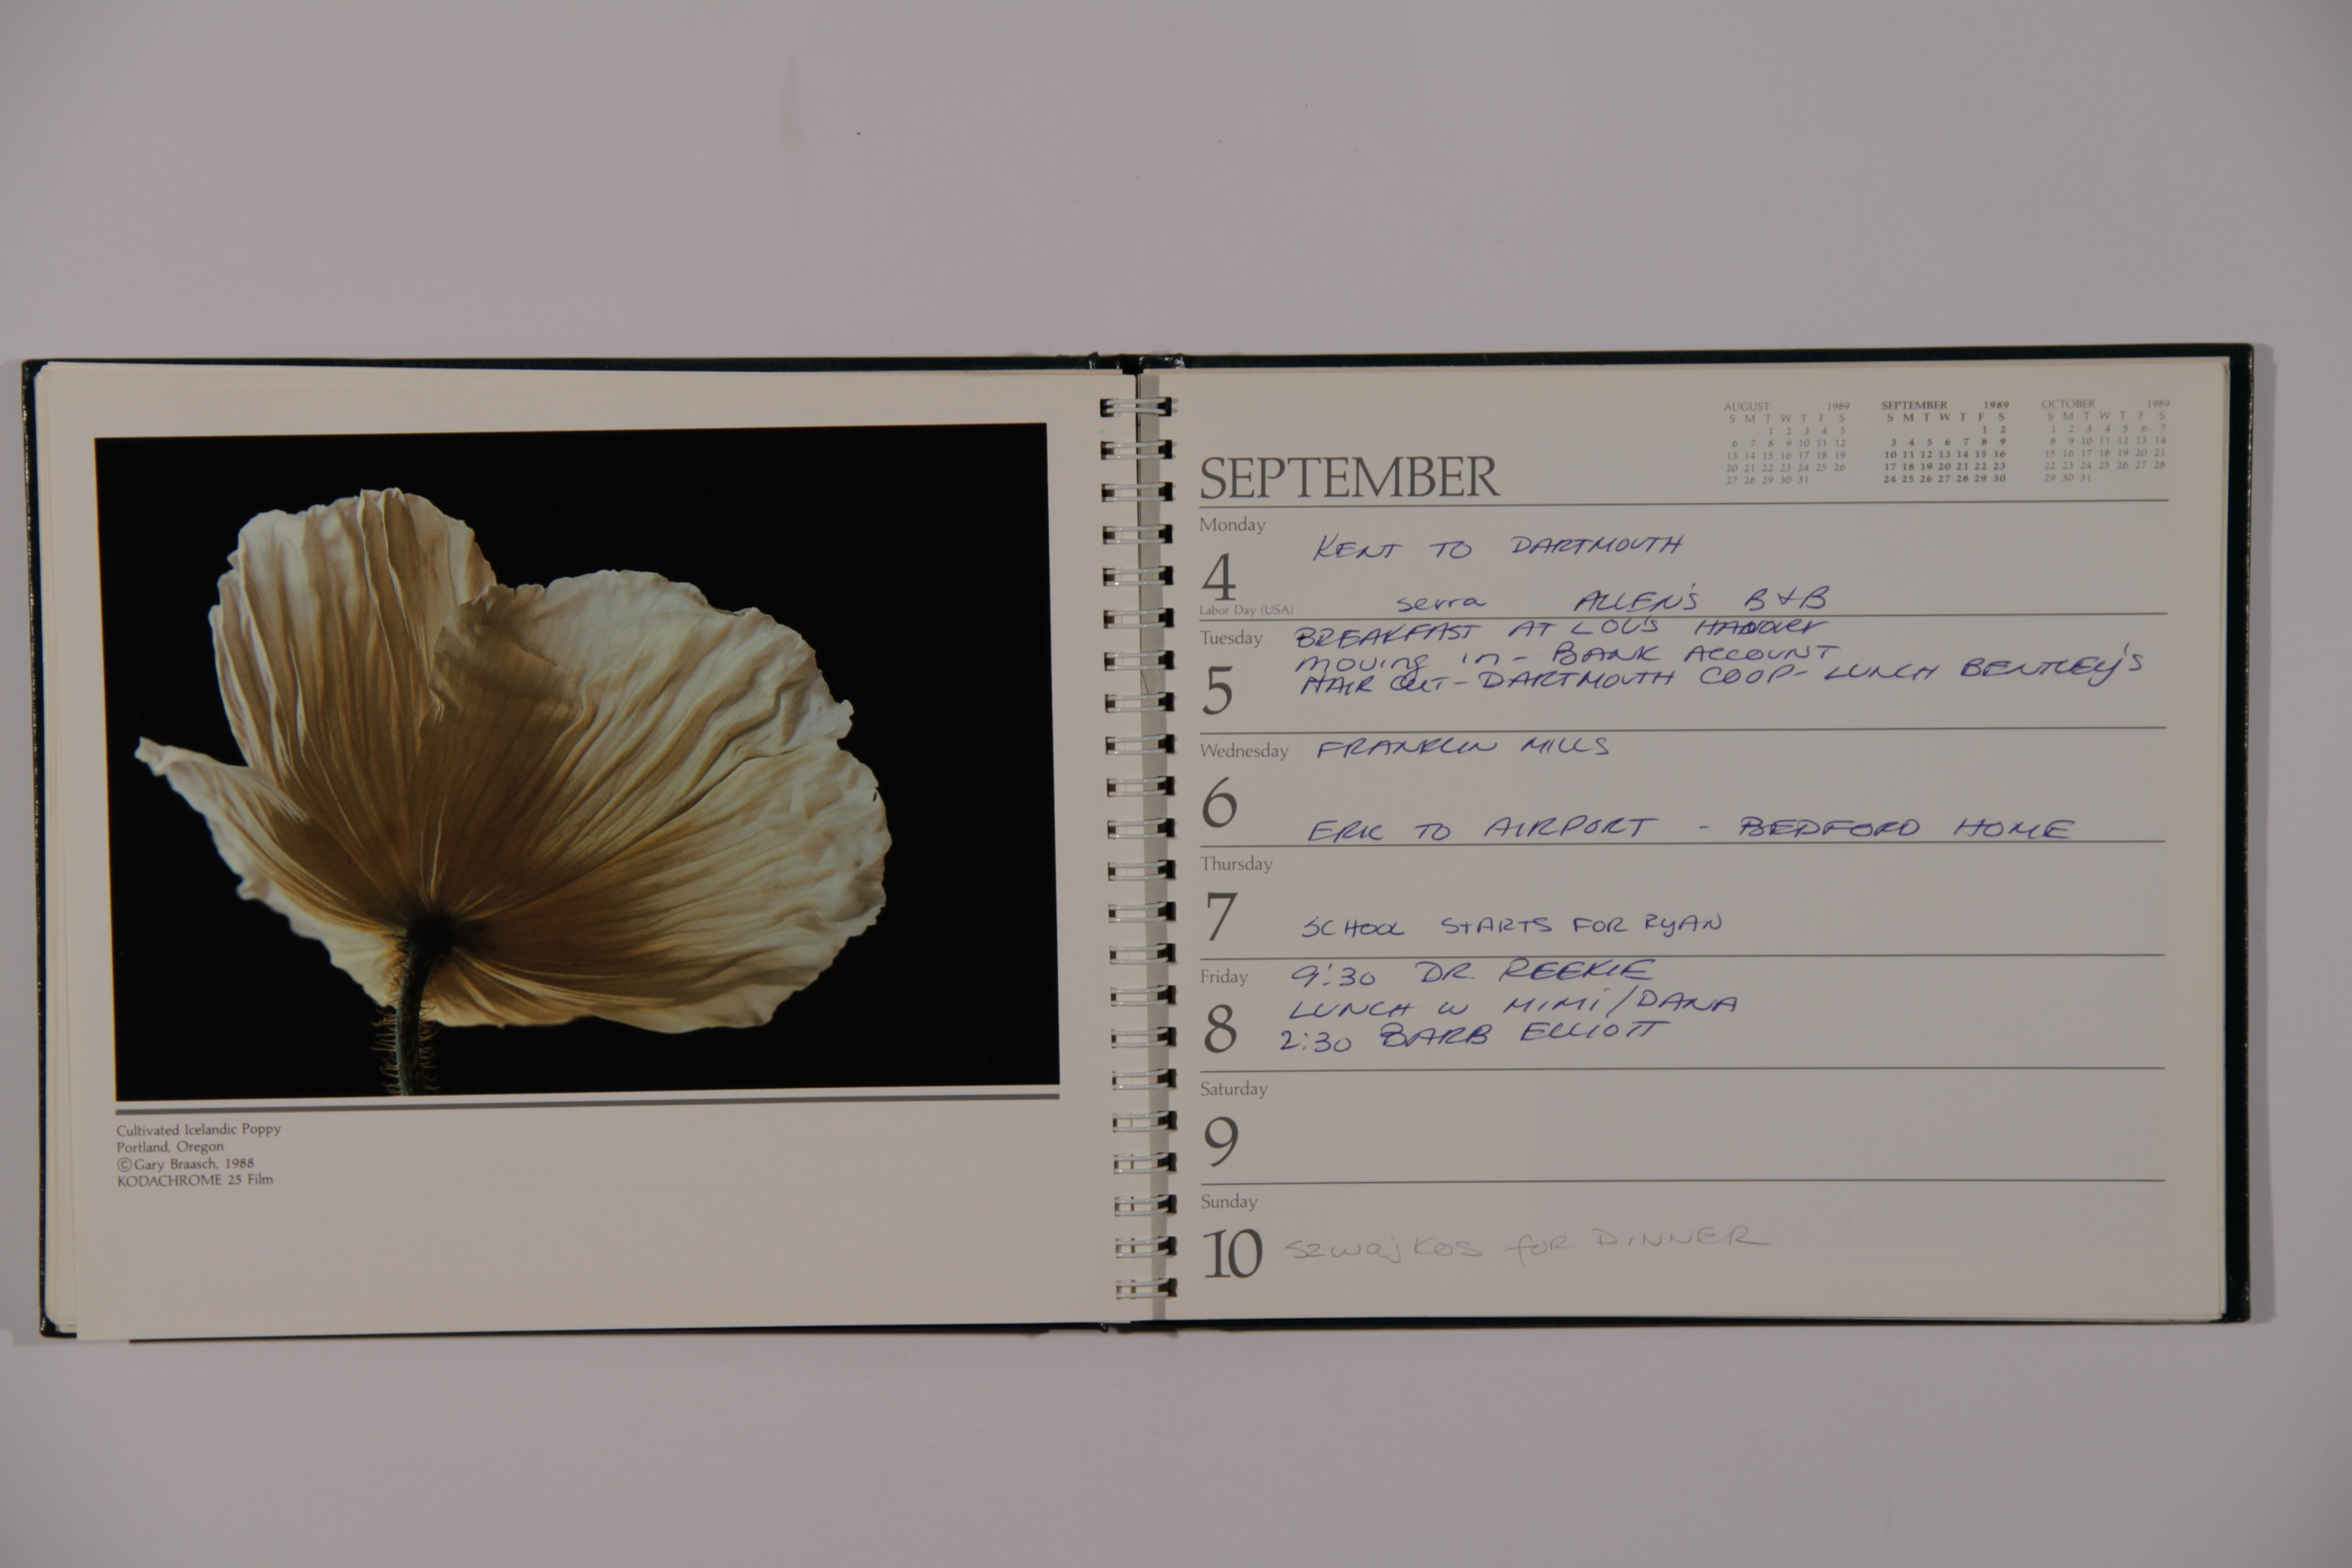 Cultivated Icelandic Poppy
Portland, Oregon
©Gary Braasch, 1988
KODACHROME 25 Film
AUGUST 1989
S M T W T F S
1 2 3 4 5
6 7 8 9 10 11 12
13 14 15 16 17 18 19
20 21 22 23 24 25 26
27 28 29 30 31
SEPTEMBER 1989
S M T W T F S
1 2
3 4 5 6 7 8 9
10 11 12 13 14 15 16
17 18 19 20 21 22 23
24 25 26 27 28 29 30
OCTOBER 1989
S M T W T F S
1 2 3 4 5 6 7
8 9 10 11 12 13 14
15 16 17 18 19 20 21
22 23 24 25 26 27 28
29 30 31
SEPTEMBER
Monday
KENT TO DARTMOUTH
4
serra ALLEN'S B+B
Labor Day (USA)
Tuesday
BREAKFAST AT LOU'S
moving in - BANK ACCOUNT
HAIR CUT - DARTMOUTH COOP - LUNCH BENTLEY'S
5
Wednesday
FRANKLIN MILLS
6
ERIC TO AIRPORT - BEDFORD HOME
Thursday
7
SCHOOL STARTS FOR RYAN
Friday
9:30 DR. REEKIE
LUNCH W MIMI/DANA
8
2:30 BARB ELLIOTT
Saturday
9
Sunday
10
SZWAJKOS FOR DINNER